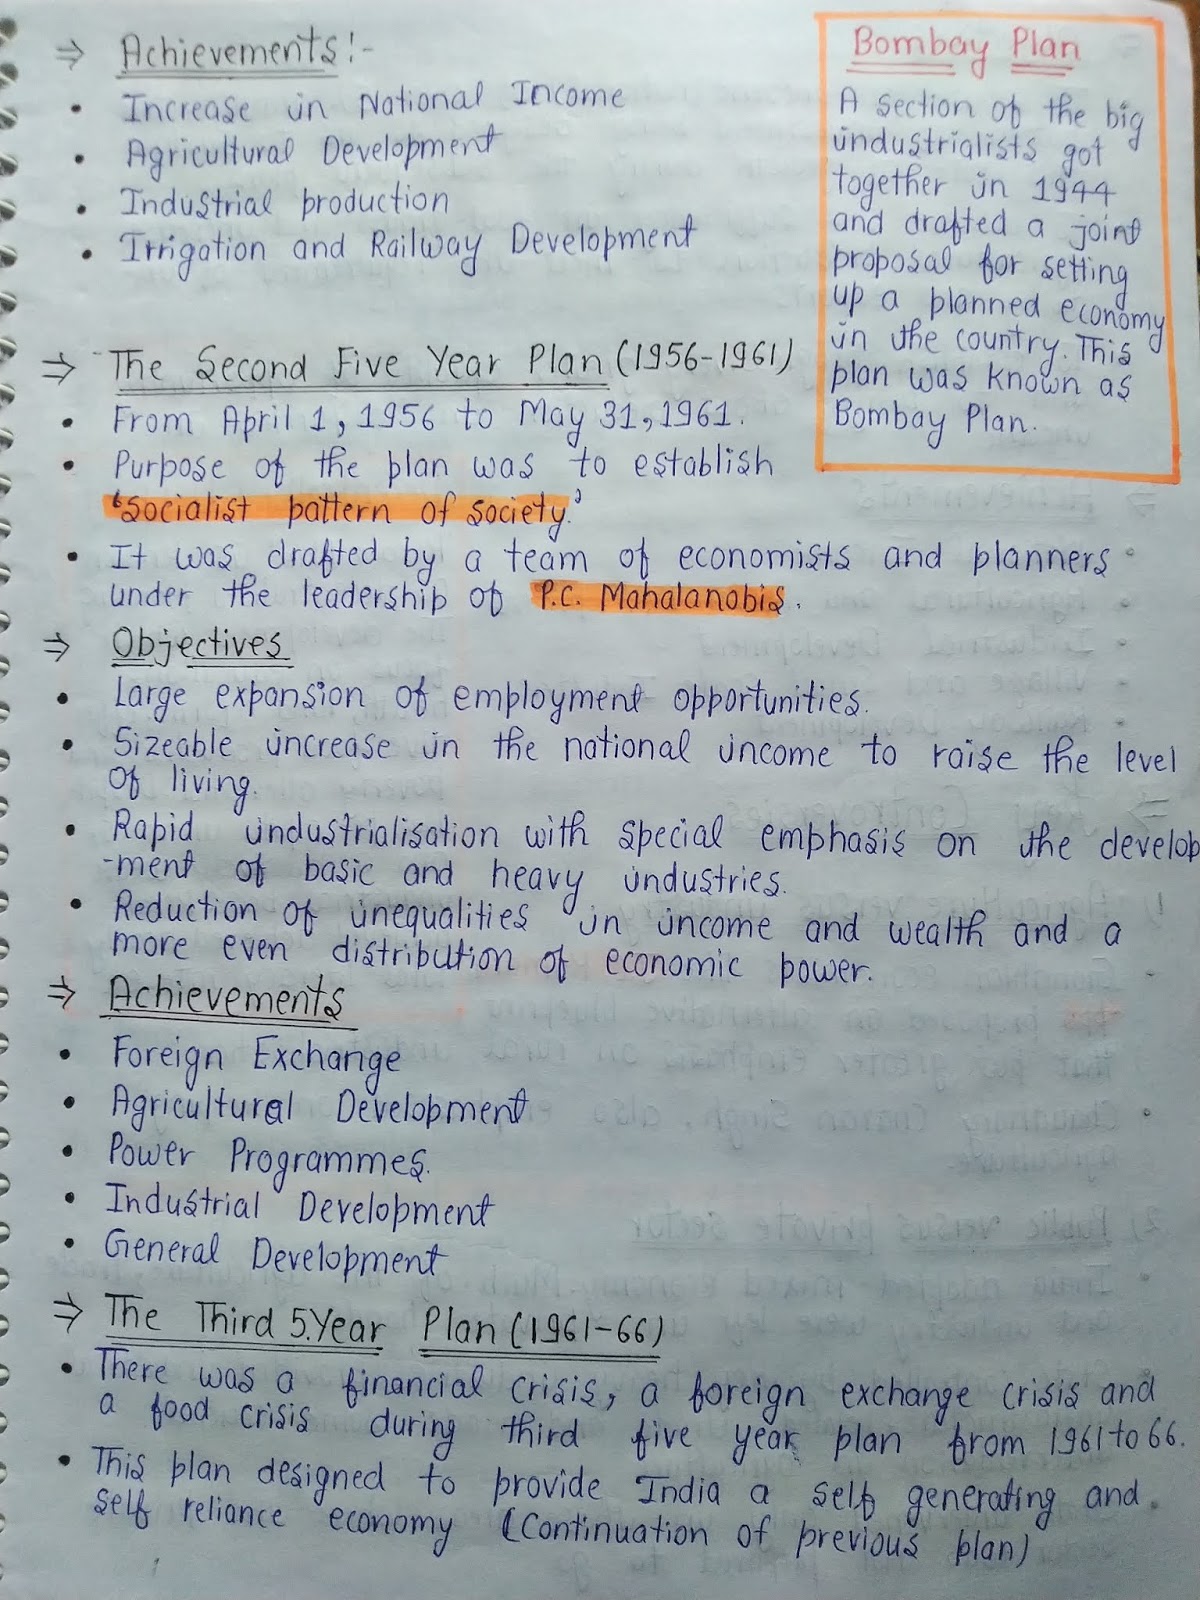 ⇒ Achievements:-
• Increase in National Income
• Agricultural Development
• Industrial production
• Irrigation and Railway Development
Bombay Plan
A section of the big
industrialists got
together in 1944
and drafted a joint
proposal for setting
up a planned economy
in the country. This
plan was known as
Bombay Plan.
⇒ The Second Five Year Plan (1956-1961)
• From April 1, 1956 to May 31, 1961.
• Purpose of the plan was to establish
'Socialist pattern of society.'
• It was drafted by a team of economists and planners
under the leadership of P.C. Mahalanobis.
⇒ Objectives
• Large expansion of employment opportunities.
• Sizeable increase in the national income to raise the level
of living.
• Rapid industrialisation with special emphasis on the develop
-ment of basic and heavy industries.
• Reduction of inequalities in income and wealth and a
more even distribution of economic power.
⇒ Achievements
• Foreign Exchange
• Agricultural Development
• Power Programmes.
• Industrial Development
• General Development
⇒ The Third 5.Year Plan (1961-66)
• There was a financial crisis, a foreign exchange crisis and
a food crisis during third five year plan from 1961 to 66.
• This plan designed to provide India a self generating and
self reliance economy (Continuation of previous plan)